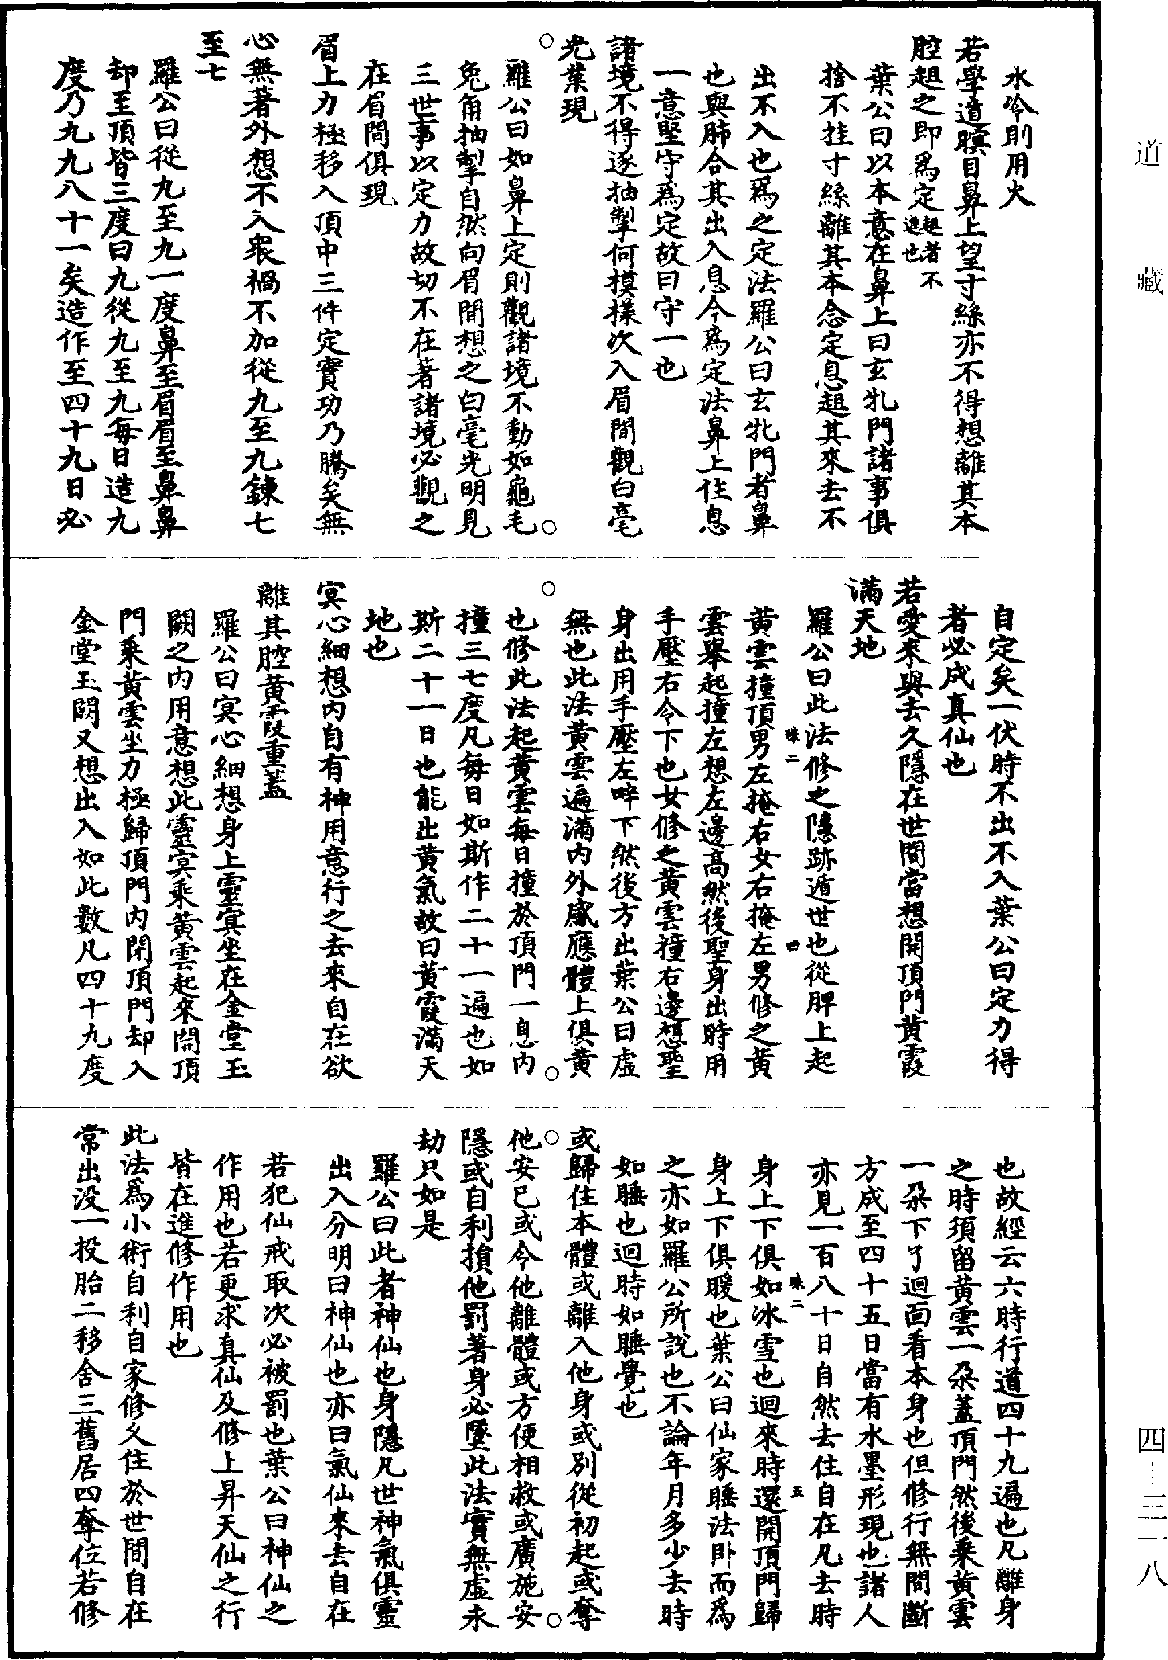 道藏
四—三一八
水冷則用火
若學道瞑目鼻上望寸絲亦不得想離其本
腔趄之即為定趄者不進也
葉公曰以本意在鼻上曰玄牝門諸事俱
捨不挂寸絲離其本念定息趄其來去不
出不入也為之定法羅公曰玄牝門者鼻
也與肺合其出入息今為定法鼻上住息
一意堅守為定故曰守一也
諸境不得逐抽掣何模樣次入眉間觀白毫
光葉現
羅公曰如鼻上定則觀諸境不動如龜毛
兔角抽掣自然向眉間想之白毫光明見
三世事以定力故切不在著諸境必觀之
在眉間俱現
眉上力極移入頂中三件定實功乃騰矣無
心無著外想不入眾禍不加從九至九鍊七
至七
羅公曰從九至九一度鼻至眉眉至鼻鼻
却至頂皆三度曰九從九至九每日造九
度乃九九八十一矣造作至四十九日必
自定矣一伏時不出不入葉公曰定力得
者必成真仙也
若愛來與去久隱在世間當想開頂門黃霞
滿天地
羅公曰此法修之隱跡遁世也從脾上起
黃雲撞頂男左掩右女右掩左男修之黃
雲舉起撞左想左邊高然後聖身出時用
手壓右令下也女修之黃雲撞右邊想聖
身出用手壓左畔下然後方出葉公曰虛
無也此法黃雲遍滿內外感應體上俱黃
也修此法起黃雲每日撞於頂門一息內
撞三七度凡每日如斯作二十一遍也如
斯二十一日也能出黃氣故曰黃霞滿天
地也
冥心細想內自有神用意行之去來自在欲
離其腔黃霞重蓋
羅公曰冥心細想身上靈冥坐在金堂玉
闕之內用意想此靈冥乘黃雲起來開頂
門乘黃雲坐力極歸頂門內閉頂門却入
金堂玉闕又想出入如此數凡四十九度
也故經云六時行道四十九遍也凡離身
之時須留黃雲一朵蓋頂門然後乘黃雲
一朵下了迴面看本身也但修行無間斷
方成至四十五日當有水墨形現也諸人
亦見一百八十日自然去住自在凡去時
身上下俱如冰雪也迴來時還開頂門歸
身上下俱暖也葉公曰仙家睡法卧而為
之亦如羅公所說也不論年月多少去時
如睡也迴時如睡覺也
或歸住本體或離入他身或別從初起或奪
他安已或令他離體或方便相救或廣施安
隱或自利損他罰著身必墜此法實無虛未
劫只如是
羅公曰此者神仙也身隱凡世神氣俱靈
出入分明曰神仙也亦曰氣仙來去自在
若犯仙戒取次必被罰也葉公曰神仙之
作用也若更求真仙及修上昇天仙之行
皆在進修作用也
此法為小術自利自家修久住於世間自在
常出沒一投胎二移舍三舊居四奪位若修